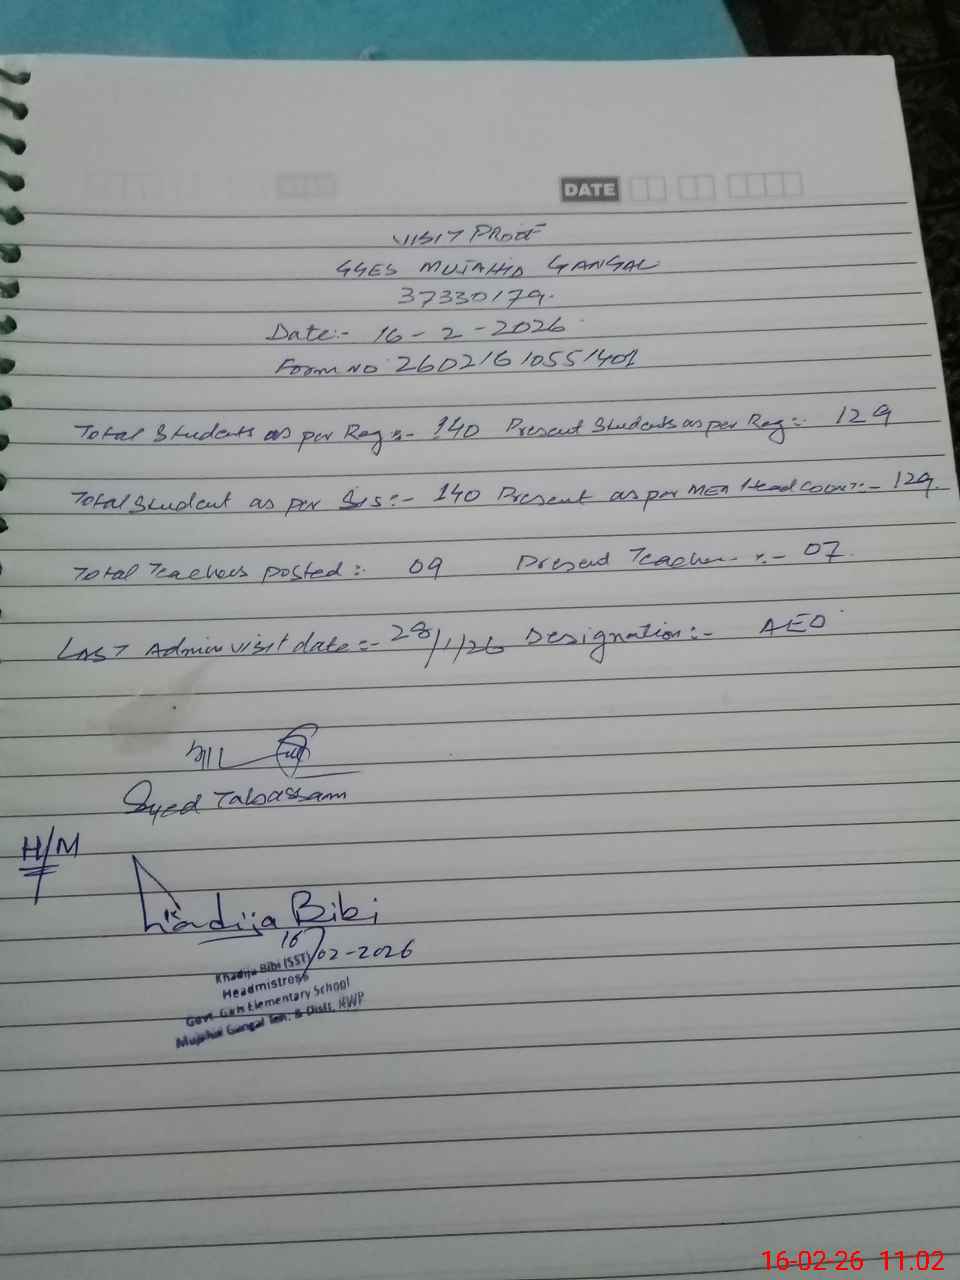 DATE
VISIT PROOF
GGES MUJAHID GANGAL
37330179.
Date:- 16-2-2026
Form NO 26021610551401
Total Students as per Reg:- 140 Present Students as per Reg:- 129
Total Student as per SIS:- 140 Present as per MEA Head count:- 129.
Total Teachers posted:- 09 Present Teacher:- 07.
LAST Admin visit date:- 28/1/26 Designation:- AEO
Syed Tabassam
H/M
Khadija Bibi
16/02-2026
Khadija Bibi (SST)
Headmistress
Govt. Girls Elementary School
Mujahid Gangal Teh. & Distt. RWP
16-02-26 11.02